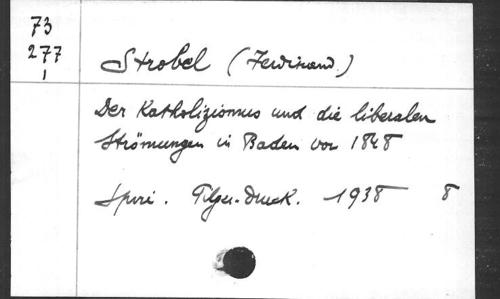 73
277
1
Strobel (Ferdinand.)
Der Katholizismus und die liberalen
Strömungen in Baden vor 1848
Pilger-Druck. 1938 8